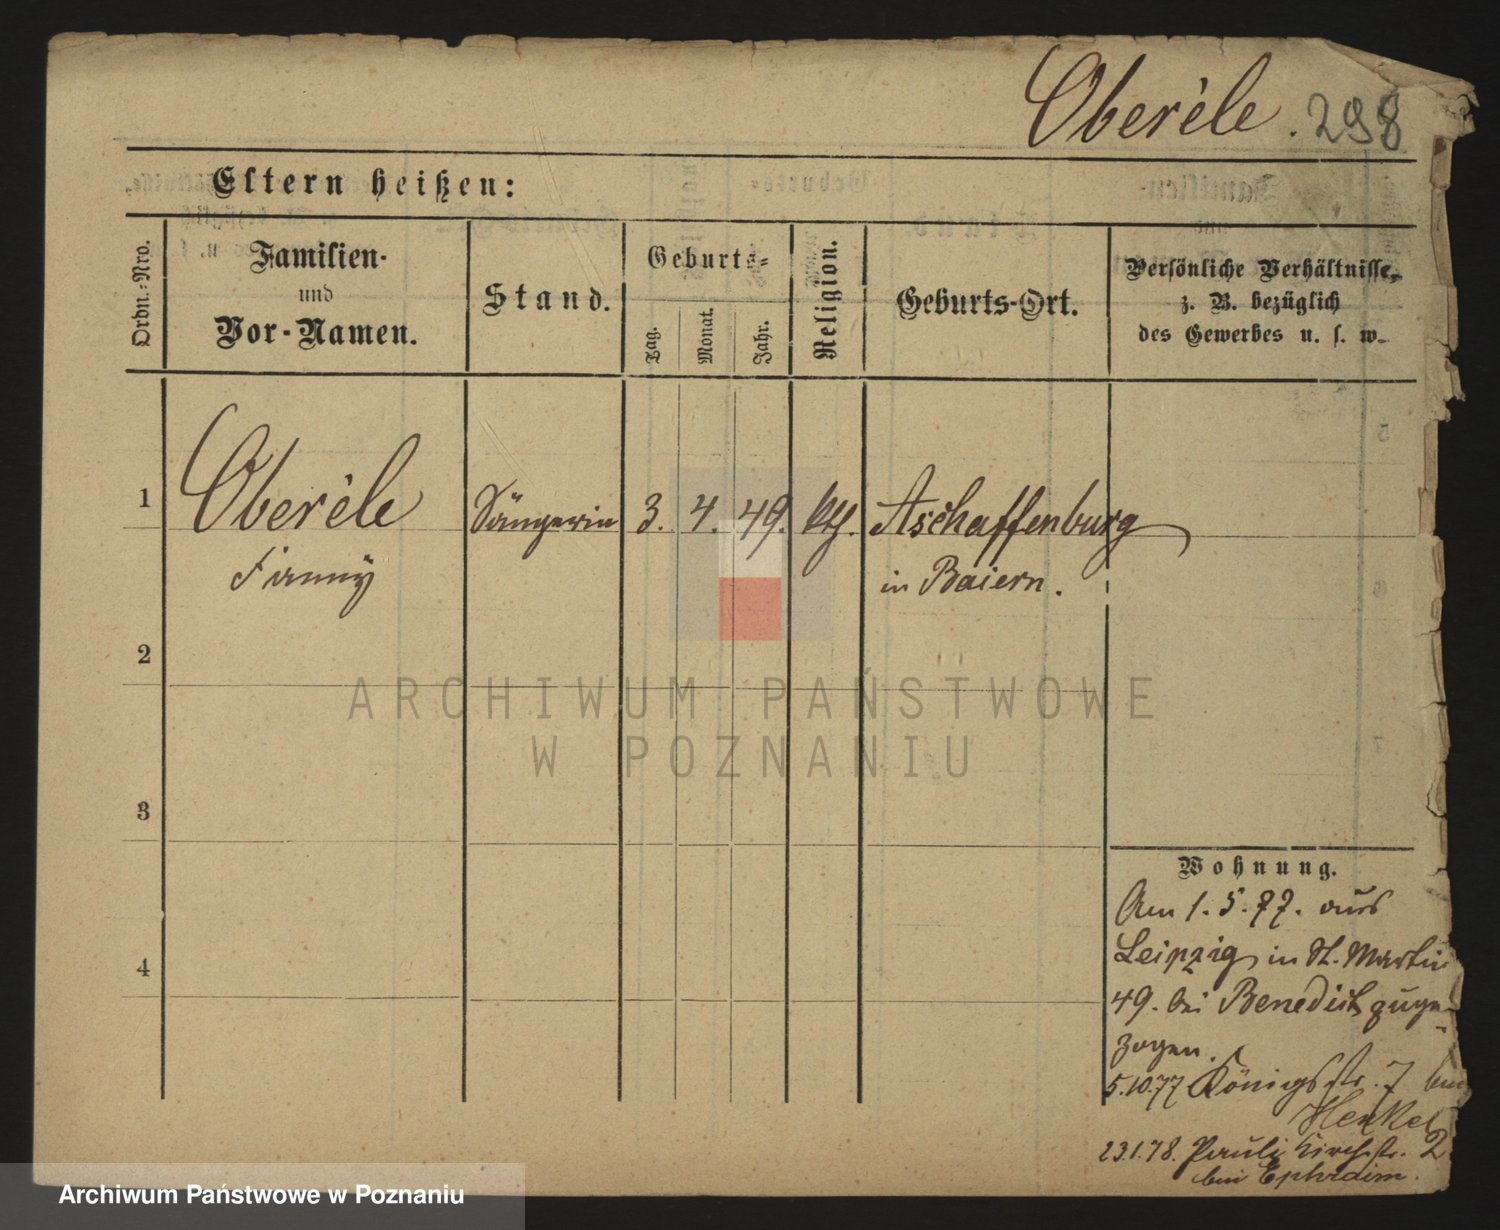 Oberèle . 298
Eltern heißen:
Ordn.-Nro.
Familien-
und
Vor-Namen.
Stand.
Geburts-
Tag.
Monat.
Jahr.
Religion.
Geburts-Ort.
Persönliche Verhältnisse,
z. B. bezüglich
des Gewerbes u. s. w.
1
Oberèle Sängerin 3. 4. 49. kth. Aschaffenburg
Fanny in Baiern.
2
3
4
Wohnung.
Am 1. 5. 77. aus
Leipzig in St. Martin
49. bei Benedict zuge-
zogen.
5.10.77 Königsstr. 7 bei
Henkel
23.1.78. Pauli Kirchstr. 2.
bei Ephraim.
ARCHIWUM PAŃSTWOWE
W POZNANIU
Archiwum Państwowe w Poznaniu